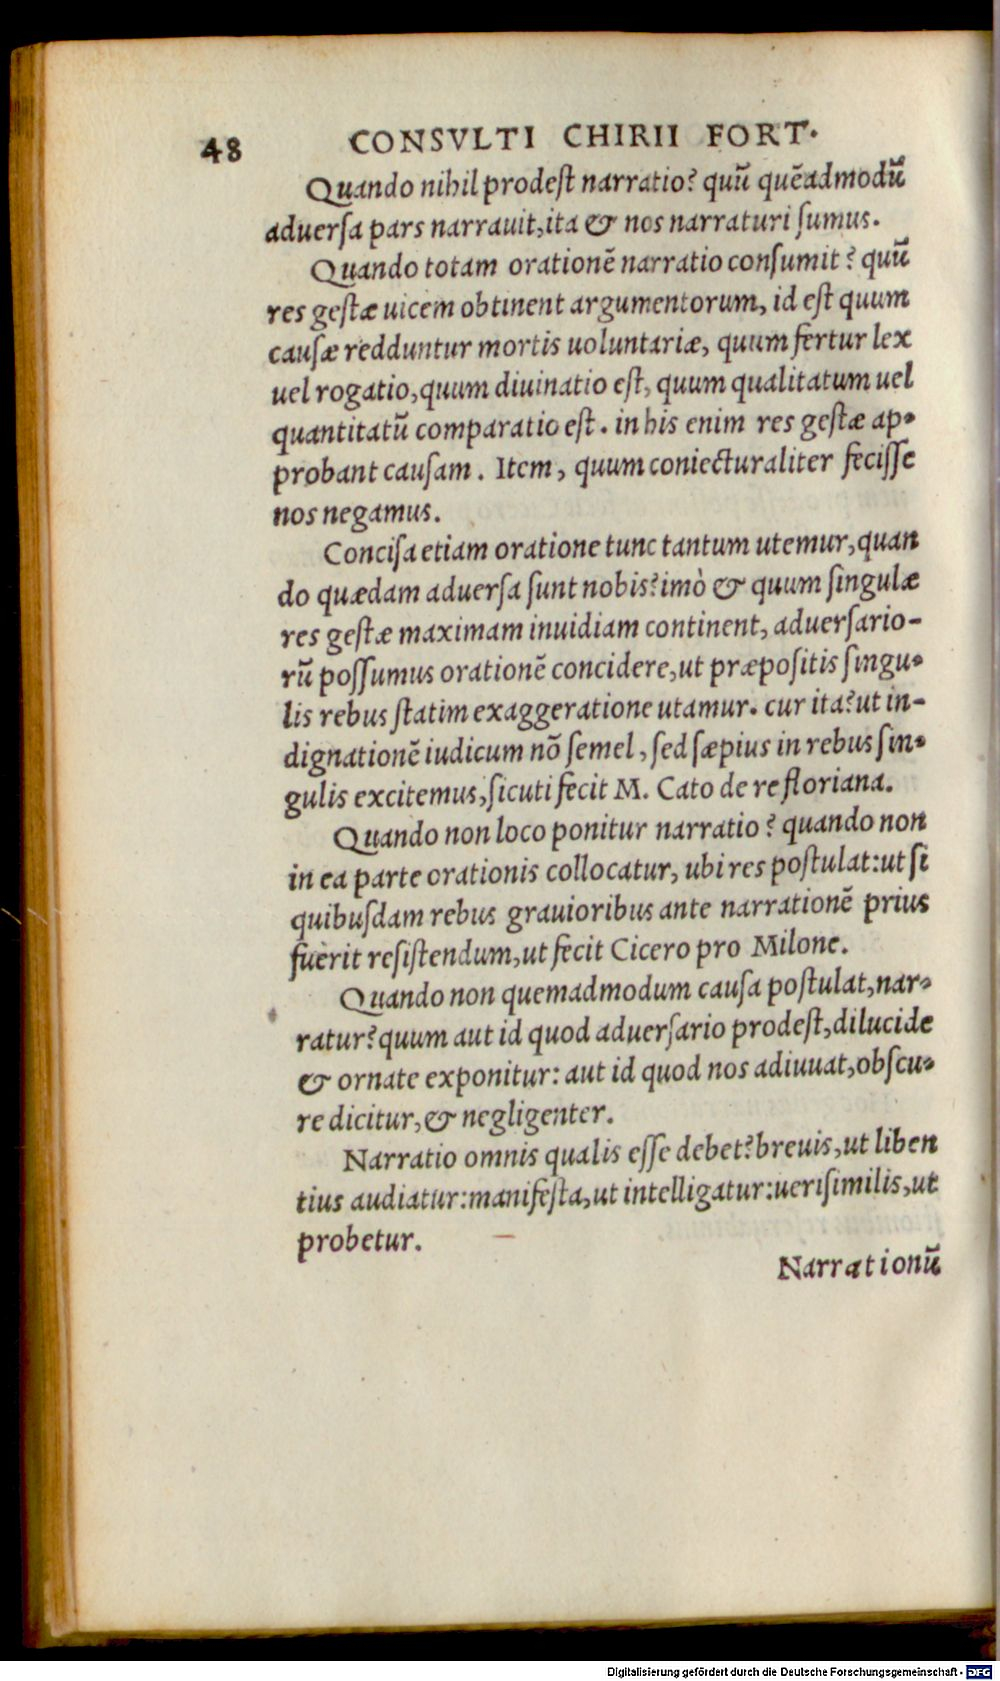 48 CONSVLTI CHIRII FORT.
Quando nihil prodeſt narratio? quũ quẽadmodũ
aduerſa pars narrauit, ita & nos narraturi ſumus.
Quando totam orationẽ narratio conſumit? quũ
res geſtæ uicem obtinent argumentorum, id eſt quum
cauſæ redduntur mortis uoluntariæ, quum fertur lex
uel rogatio, quum diuinatio eſt, quum qualitatum uel
quantitatũ comparatio eſt. in his enim res geſtæ ap-
probant cauſam. Item, quum coniecturaliter feciſſe
nos negamus.
Conciſa etiam oratione tunc tantum utemur, quan
do quædam aduerſa ſunt nobis? imò & quum ſingulæ
res geſtæ maximam inuidiam continent, aduerſario-
rũ poſſumus orationẽ concidere, ut præpoſitis ſingu-
lis rebus ſtatim exaggeratione utamur. cur ita? ut in-
dignationẽ iudicum nõ ſemel, ſed ſæpius in rebus ſin-
gulis excitemus, ſicuti fecit M. Cato de re floriana.
Quando non loco ponitur narratio? quando non
in ea parte orationis collocatur, ubi res poſtulat: ut ſi
quibuſdam rebus grauioribus ante narrationẽ prius
fuerit reſiſtendum, ut fecit Cicero pro Milone.
Quando non quemadmodum cauſa poſtulat, nar-
ratur? quum aut id quod aduerſario prodeſt, dilucide
& ornate exponitur: aut id quod nos adiuuat, obſcu-
re dicitur, & negligenter.
Narratio omnis qualis eſſe debet? breuis, ut liben
tius audiatur: manifeſta, ut intelligatur: ueriſimilis, ut
probetur.
Narrationũ
Digitalisierung gefördert durch die Deutsche Forschungsgemeinschaft - DFG